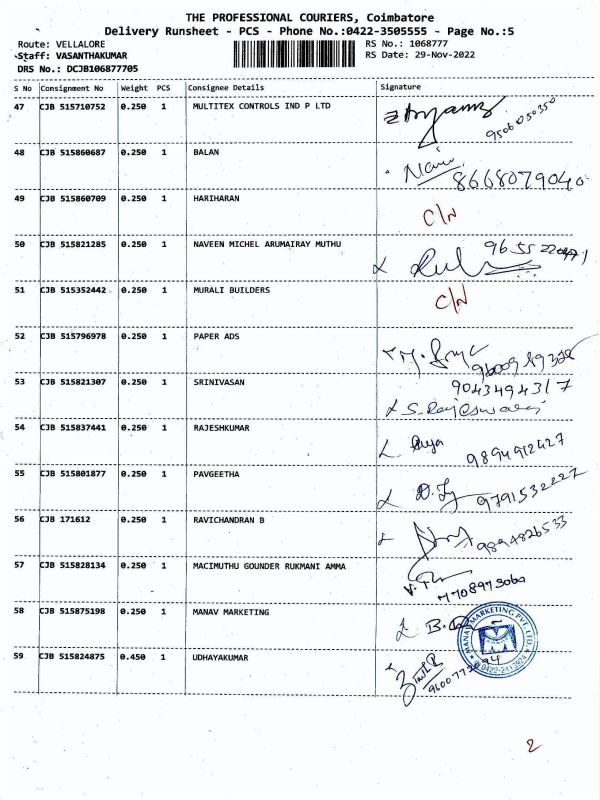 THE PROFESSIONAL COURIERS, Coimbatore
Delivery Runsheet - PCS - Phone No.:0422-3505555 - Page No.:5
Route: VELLALORE
RS No.: 1068777
Staff: VASANTHAKUMAR
RS Date: 29-Nov-2022
DRS No.: DCJB106877705
S No Consignment No Weight PCS Consignee Details Signature
47 CJB 515710752 0.250 1 MULTITEX CONTROLS IND P LTD
9506050350
48 CJB 515860687 0.250 1 BALAN
8668079040
49 CJB 515860709 0.250 1 HARIHARAN C/N
50 CJB 515821285 0.250 1 NAVEEN MICHEL ARUMAIRAY MUTHU
51 CJB 515352442 0.250 1 MURALI BUILDERS C/N
52 CJB 515796978 0.250 1 PAPER ADS
53 CJB 515821307 0.250 1 SRINIVASAN 9043494317
S. Rajeswari
54 CJB 515837441 0.250 1 RAJESHKUMAR
9894912427
55 CJB 515801877 0.250 1 PAVGEETHA
9791532227
56 CJB 171612 0.250 1 RAVICHANDRAN B
9894826533
57 CJB 515828134 0.250 1 MACIMUTHU GOUNDER RUKMANI AMMA
7708973060
58 CJB 515875198 0.250 1 MANAV MARKETING
MANAV MARKETING PVT. LTD.
59 CJB 515824875 0.450 1 UDHAYAKUMAR
2